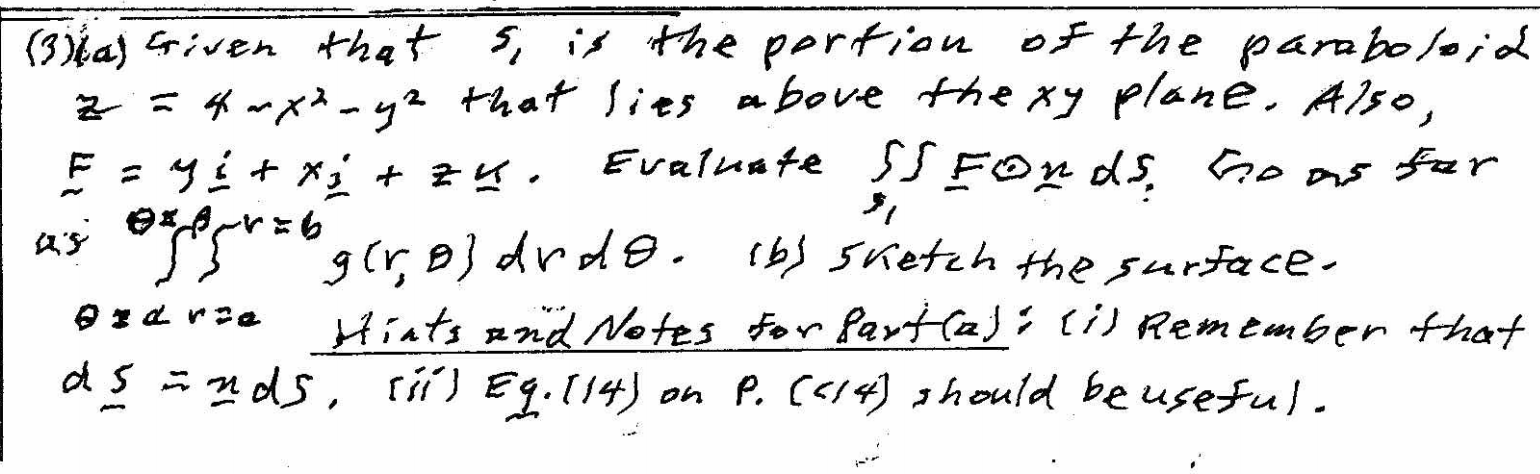 (3)(a) Given that S₁ is the portion of the paraboloid
z = 4 - x² - y² that lies above the xy plane. Also,
F = y i + x j + z k. Evaluate ∬ F⊙n dS. Go as far
S₁
as ∫∫ g(r, θ) dr dθ. (b) Sketch the surface.
θ=β r=b
θ=α r=a Hints and Notes for Part(a): (i) Remember that
dS = n dS, (ii) Eq.(14) on P. (C14) should be useful.